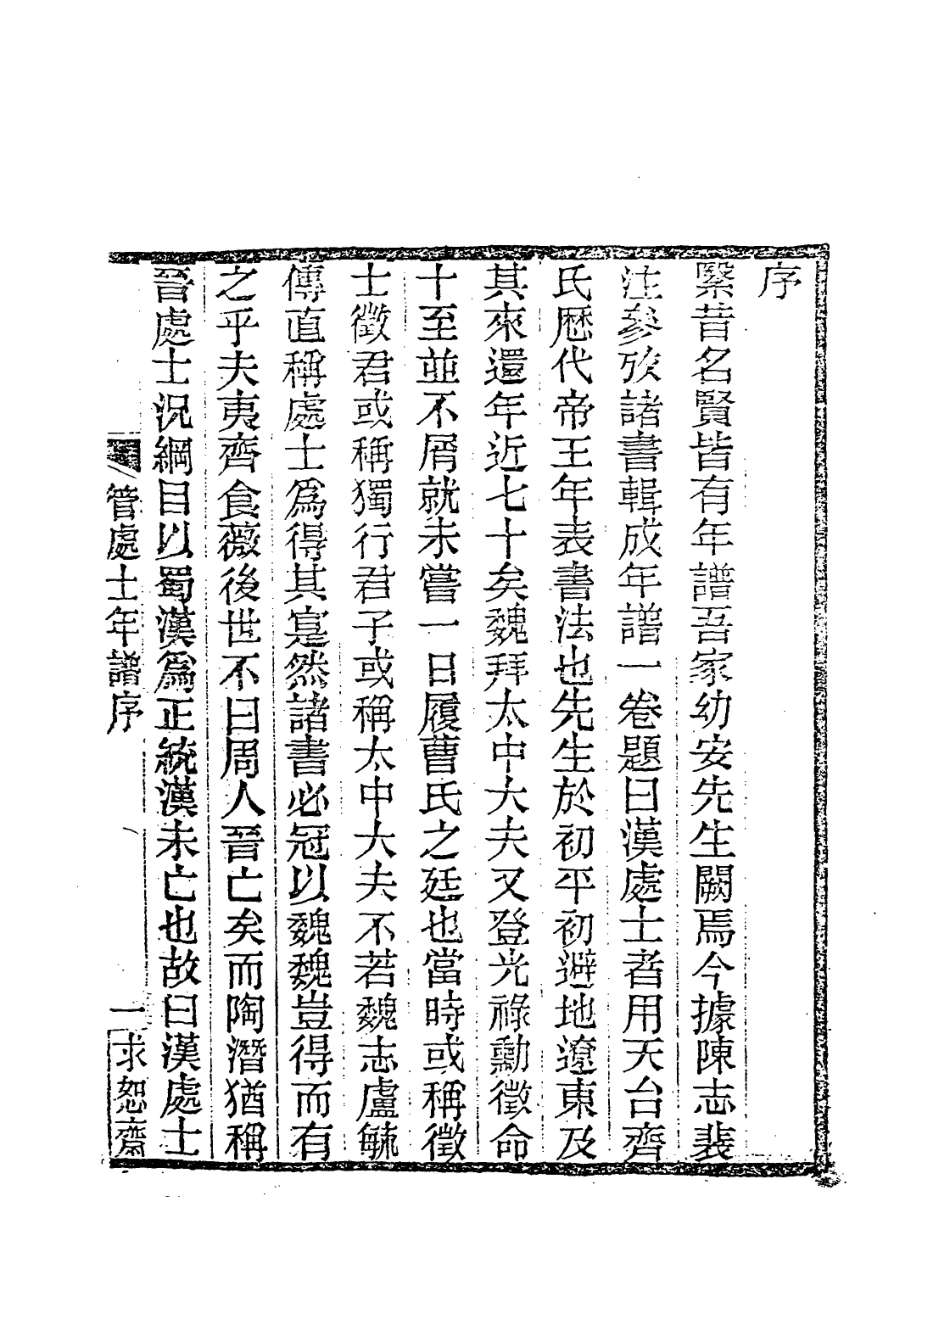 序
緊昔名賢皆有年譜吾家幼安先生闕焉今據陳志裴
注參攷諸書輯成年譜一卷題曰漢處士者用天台齊
氏歷代帝王年表書法也先生於初平初避地遼東及
其來還年近七十矣魏拜太中大夫又登光祿勳徵命
十至並不屑就未嘗一日履曹氏之廷也當時或稱徵
士徵君或稱獨行君子或稱太中大夫不若魏志盧毓
傳直稱處士爲得其寔然諸書必冠以魏魏豈得而有
之乎夫夷齊食薇後世不曰周人晉亡矣而陶潛猶稱
晉處士況綱目以蜀漢爲正統漢未亡也故曰漢處士
管處士年譜序
一
求恕齋